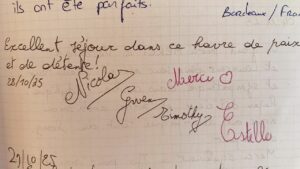 ils ont été parfaits.
Bordeaux / Fran
Excellent séjour dans ce havre de paix
et de détente!
28/10/25
Nicolas / Gwen / Timothy / Estelle
Merci ♡
29/10/25